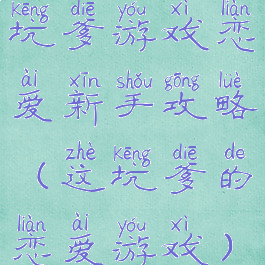 kēng diē yóu xì liàn
坑爹游戏恋
ài xīn shǒu gōng lüè
爱新手攻略
zhè kēng diē de
（这坑爹的
liàn ài yóu xì
恋爱游戏）